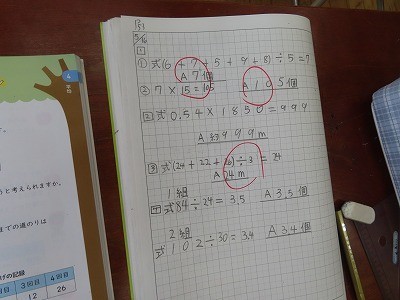 5/16
1
① 式(6 + 7 + 5 + 9 + 8) ÷ 5 = 7
A 7個
② 7 × 15 = 105
A 105個
2 式 0.54 × 1850 = 999
A 約999m
3 式 (24 + 22 + 26) ÷ 3 = 24
A 24m
1組
4 式 84 ÷ 24 = 3.5 A 3.5個
2組
式 102 ÷ 30 = 3.4 A 3.4個
4
平均
うと考えられますか。
までの道のりは
げの記録
回 3回目 4回目
12 26